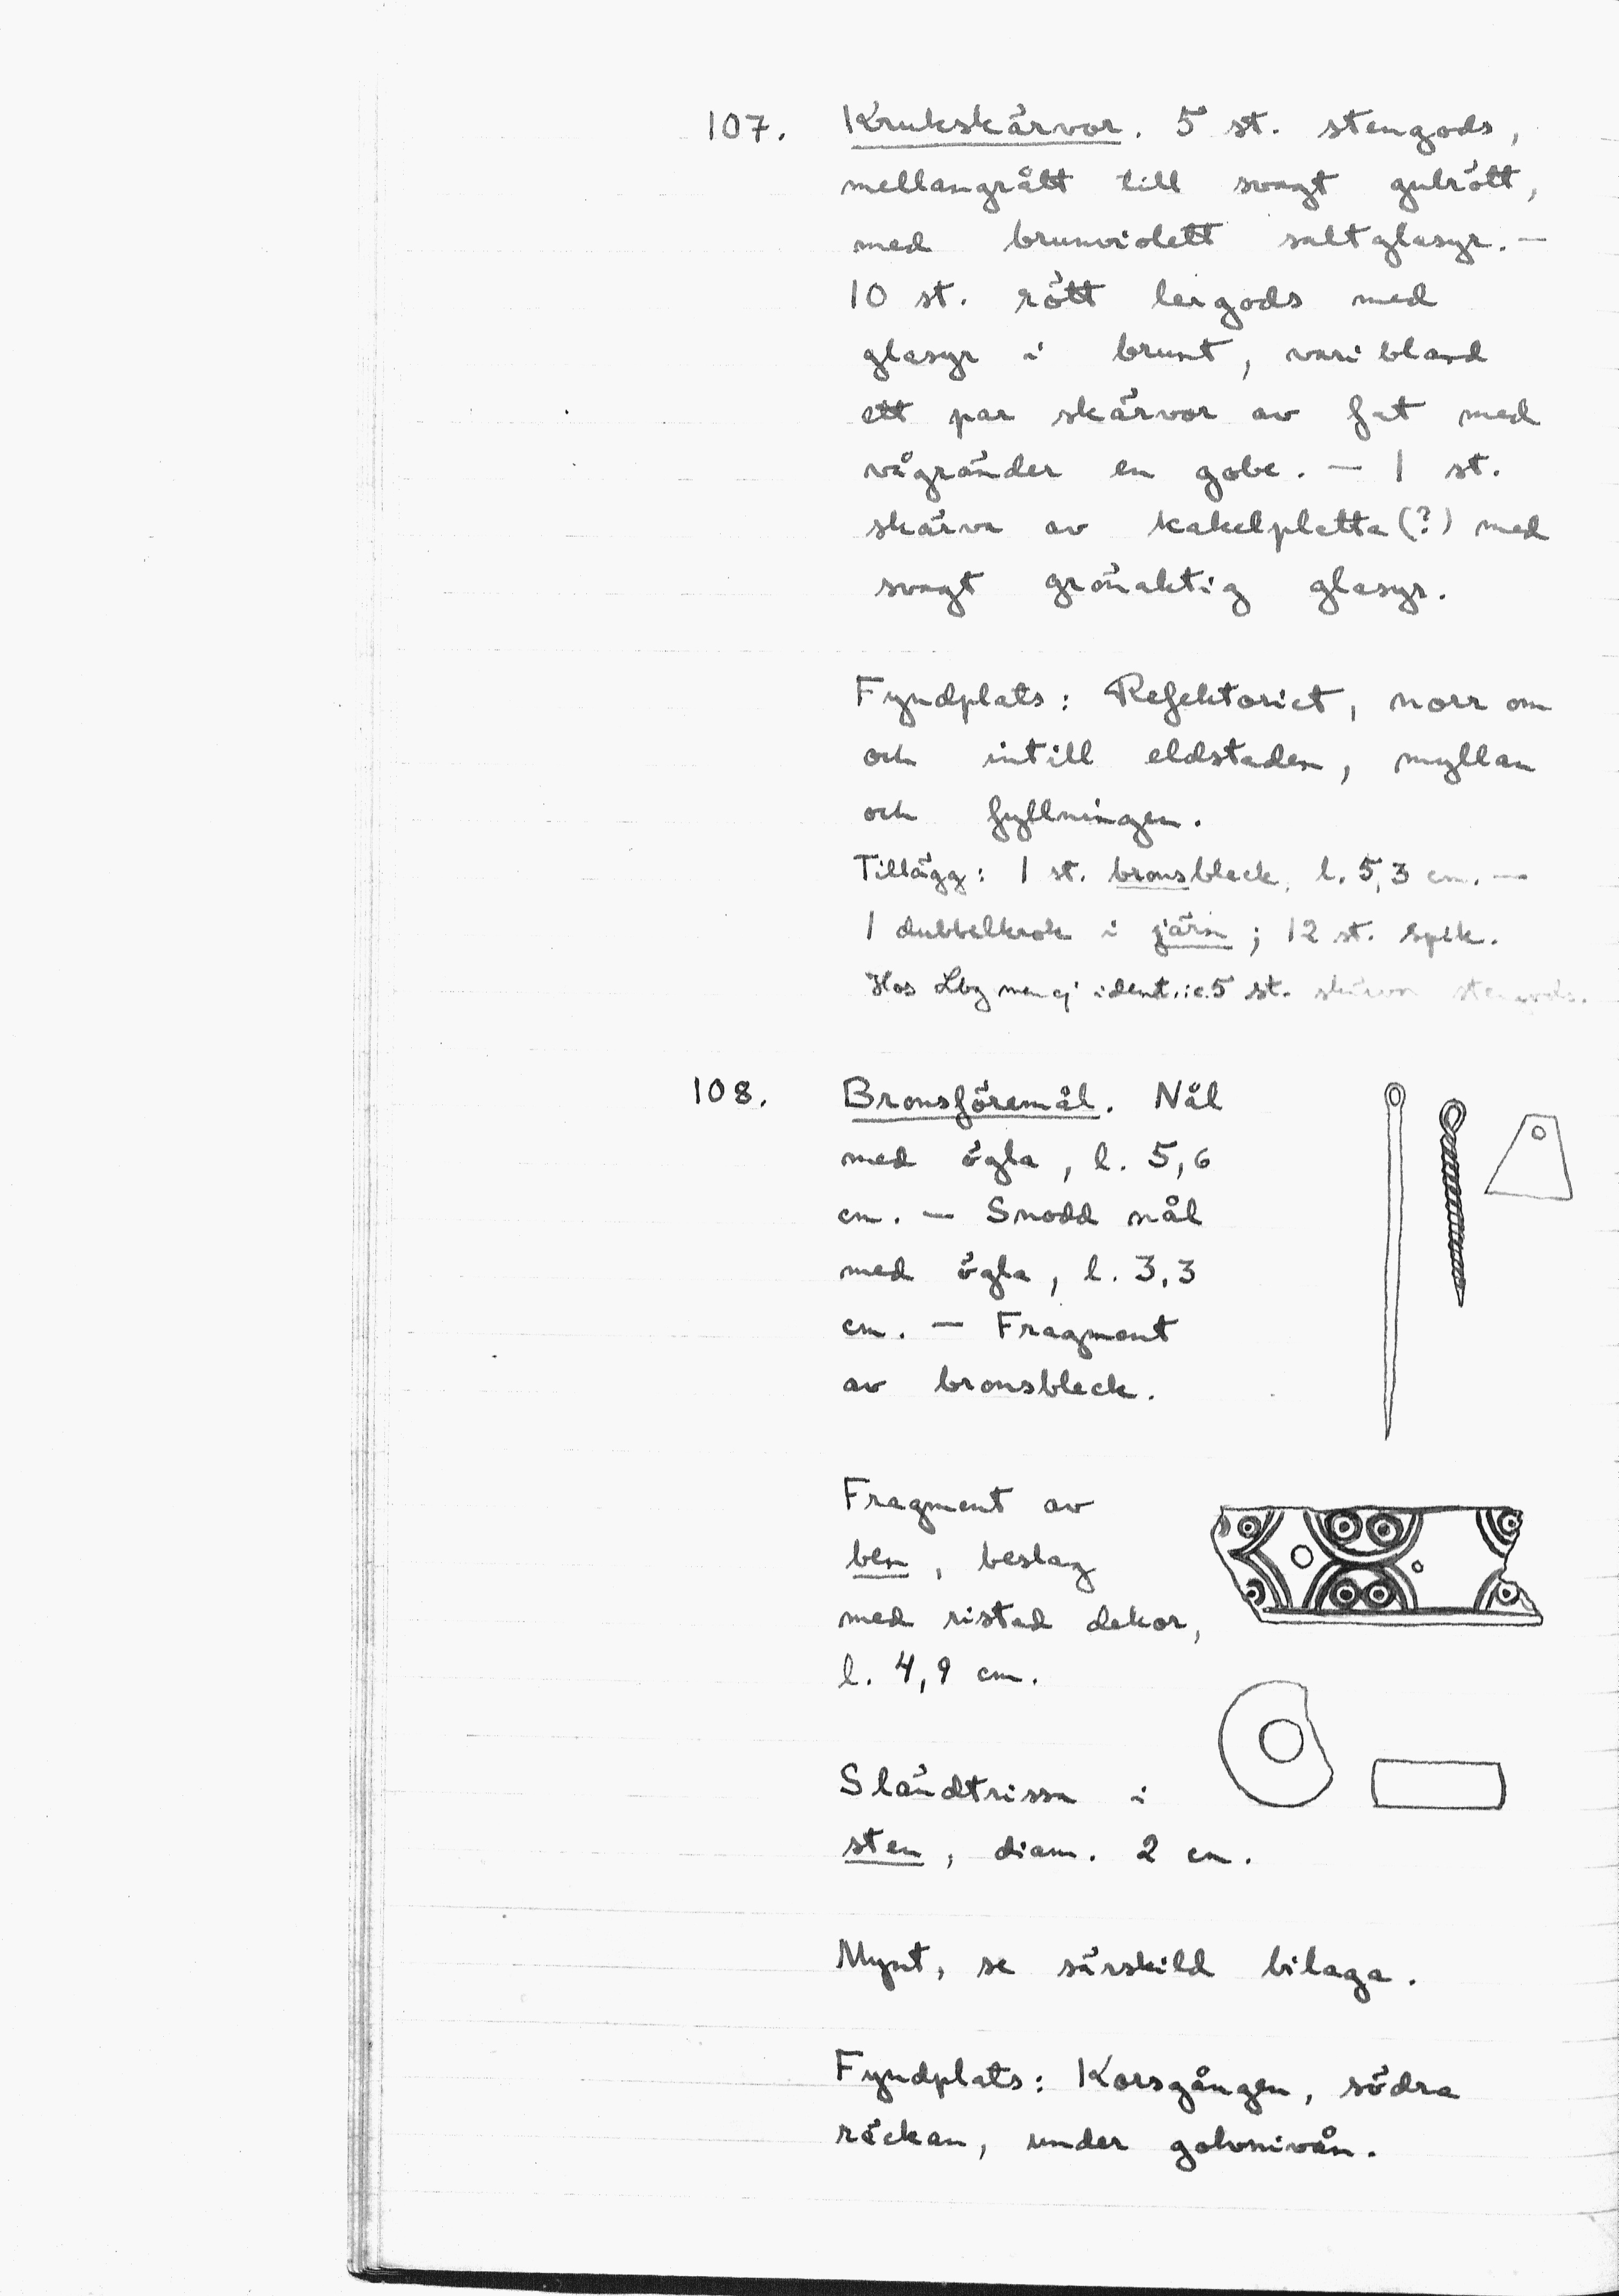 107. Krukskärvor. 5 st. stengods,
mellangrått till svagt gulrött,
med brunviolett saltglasyr. —
10 st. rött lergods med
glasyr i brunt, varibland
ett par skärvor av fat med
vågränder en gobe. — 1 st.
skärva av kakelplatta (?) med
svagt grönaktig glasyr.
Fyndplats: Refektoriet, norr om
och intill eldstaden, myllan
och fyllningen.
Tillägg: 1 st. bronsbleck, l. 5,3 cm. —
1 dubbelkrok i järn; 12 st. spik.
Hos Lbg men ej ident.: 5 st. skärvor stengods.
108. Bronsföremål. Nål
med ögla, l. 5,6
cm. — Snodd nål
med ögla, l. 3,3
cm. — Fragment
av bronsbleck.
Fragment av
ben, beslag
med ristad dekor,
l. 4,9 cm.
Sländtrissa i
sten, diam. 2 cm.
Mynt, se särskild bilaga.
Fyndplats: Korsgången, södra
räckan, under golvnivån.